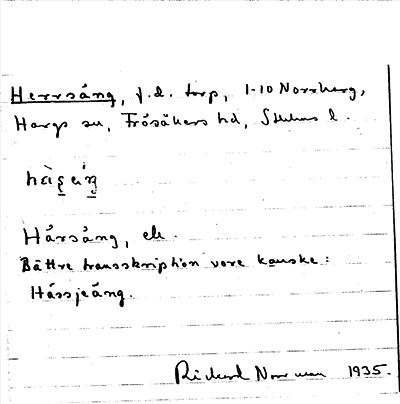 Herrsång, f.d. torp, 1-10 Norrharg,
Hargs sn, Frösåkers hd, Sthlms l.
Hårsång, ele.
Bättre transskription vore kanske:
Håssjeång.
Rickard Norrman 1935.